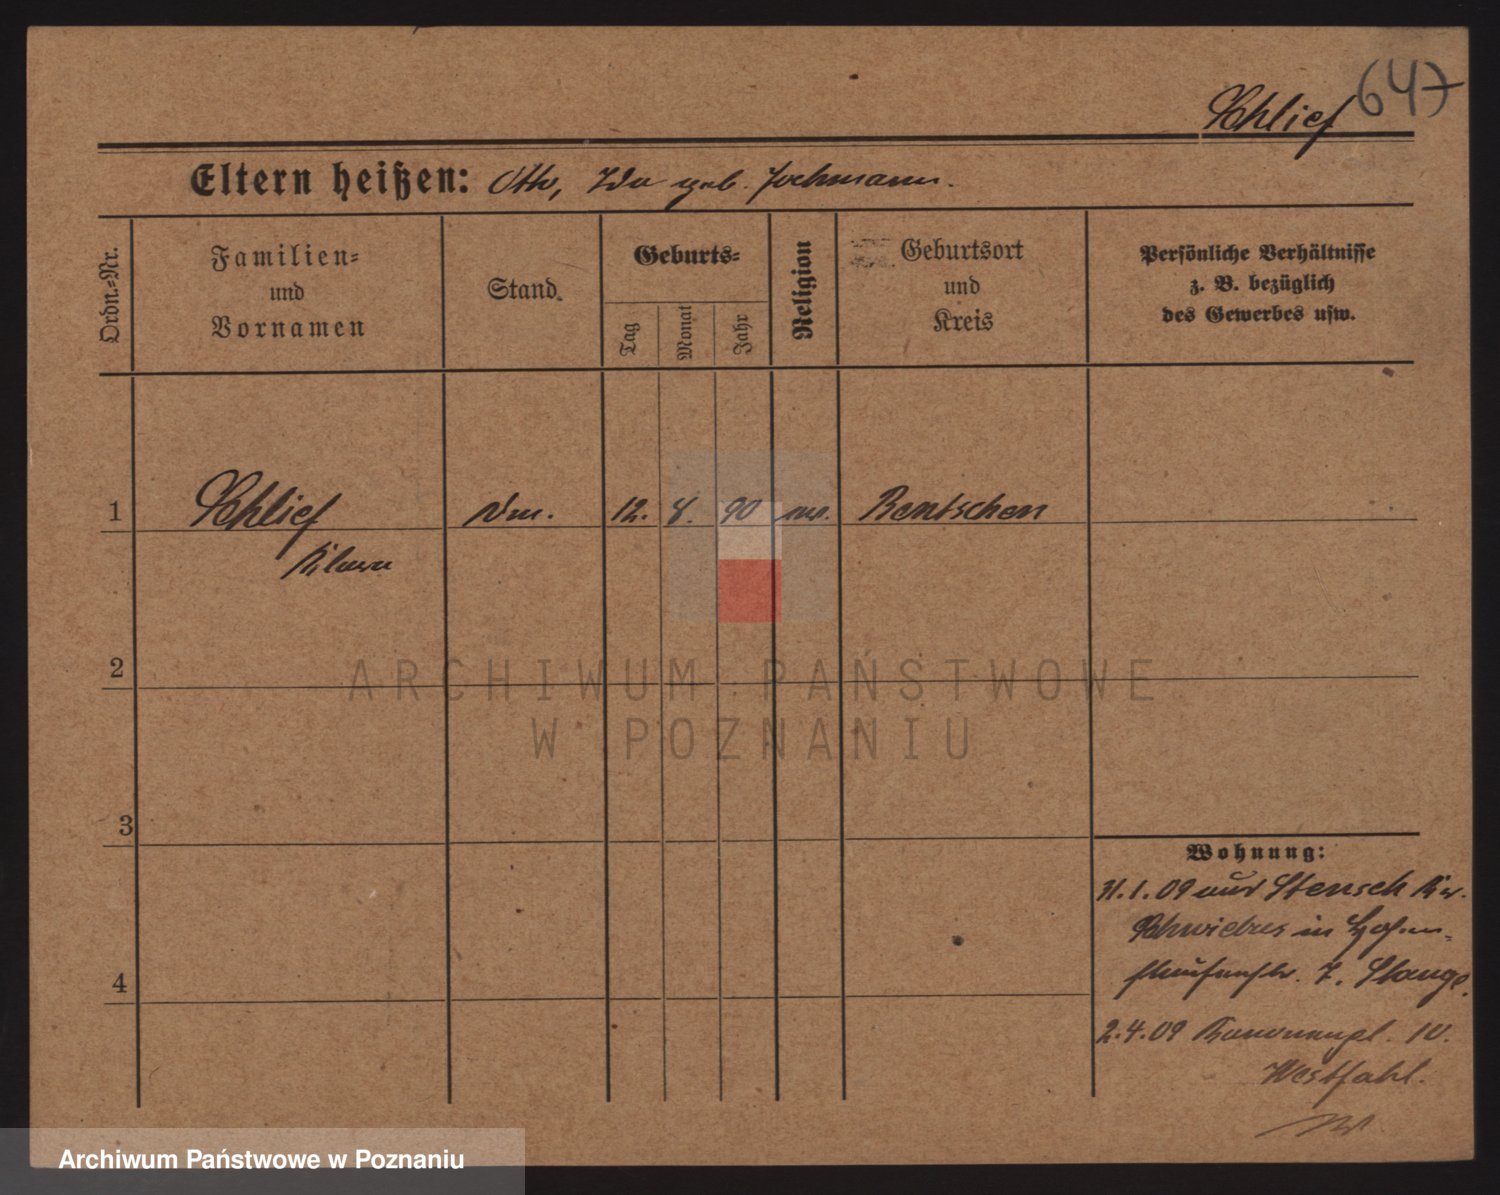 647
Schlief
Eltern heißen: Otto, Ida geb. Jochmann.
Ordn.-Nr.
Familien-
und
Vornamen
Stand.
Geburts-
Tag
Monat
Jahr
Religion
Geburtsort
und
Kreis
Persönliche Verhältnisse
z. B. bezüglich
des Gewerbes usw.
1 Schlief 12. 8. 90 Bentschen
Klara
2
3
4
Wohnung:
31.1.09 aus Stensch Kr.
Schwiebus in Hohen-
staufenstr. 7. Stange.
2.4.09 10.
Westfahl.
ARCHIWUM PAŃSTWOWE
W POZNANIU
Archiwum Państwowe w Poznaniu